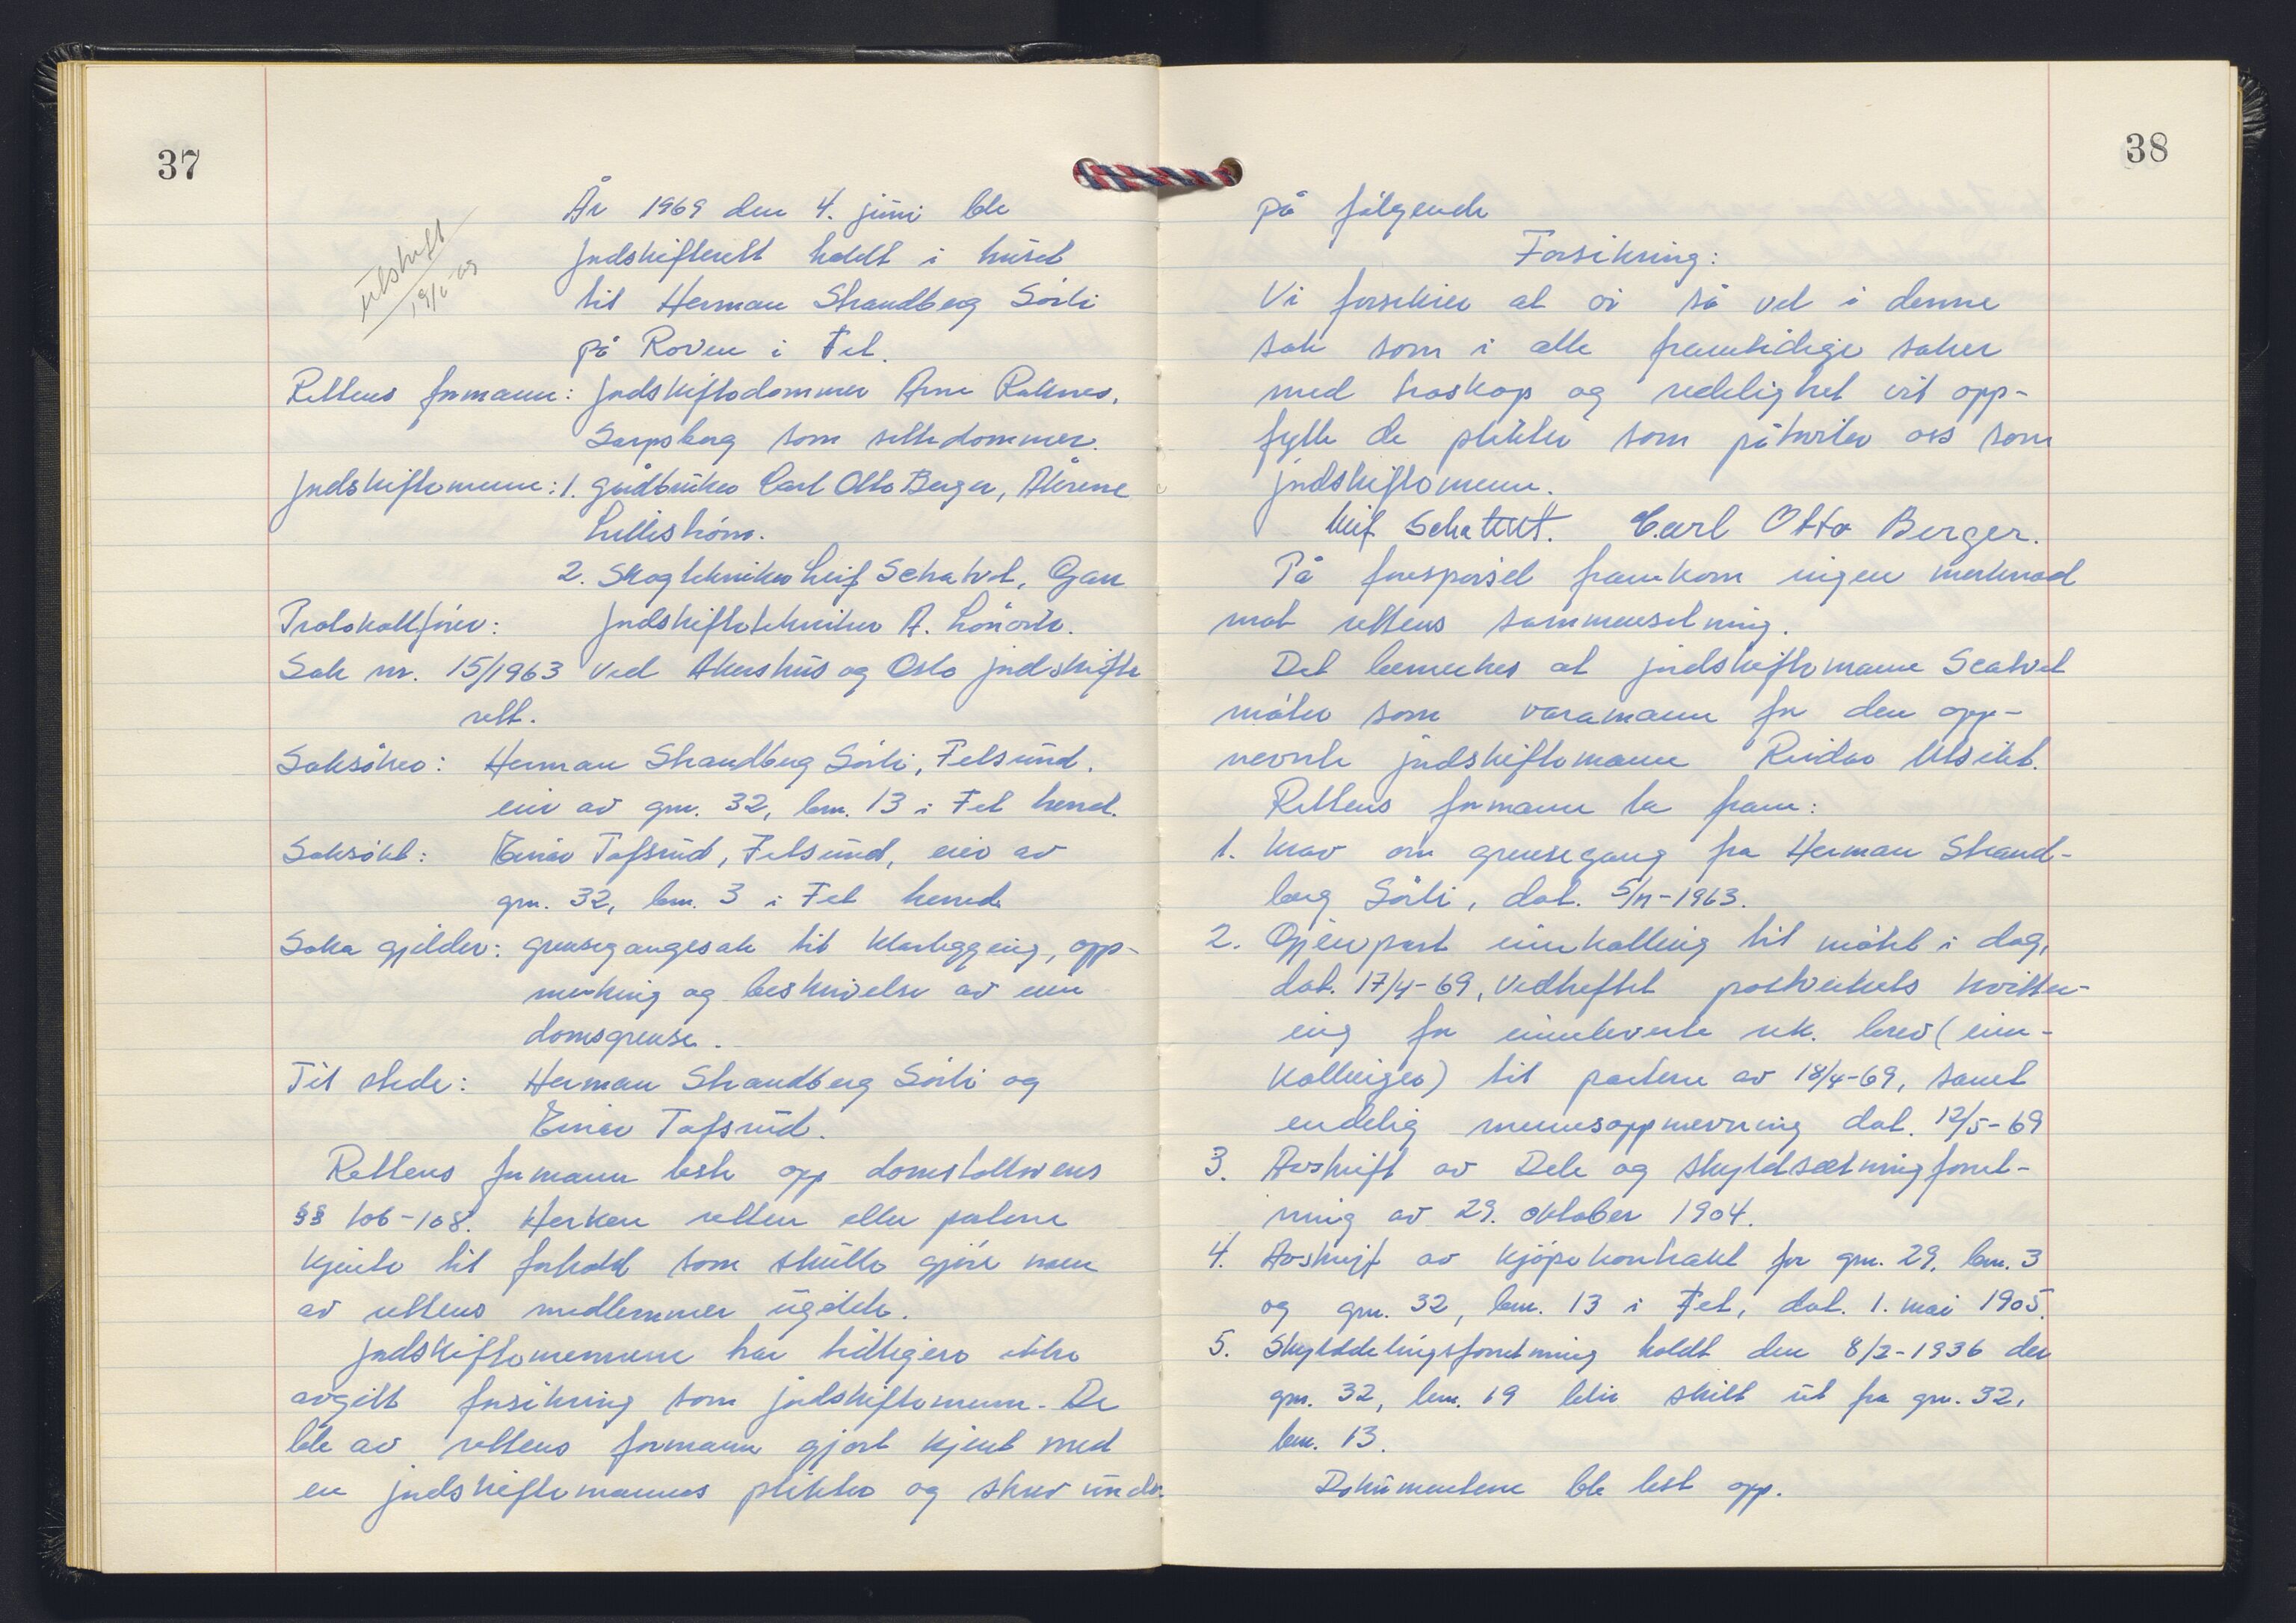 37
utskrift
År 1969 den 4. juni ble
jordskifterett holdt i huset
til Herman Strandberg Sørli
på Roven i Fet.
Rettens formann: jordskiftedommer Arne Raknes,
Sarpsborg som settedommer.
Jordskiftemenn: 1. gårdbruker Carl Otto Berger,
Lillestrøm.
2. Skogtekniker Leif Schatvet, Gan
Protokollfører: jordskiftetekniker A.
Sak nr. 15/1963 ved Akershus og Oslo jordskifte
rett.
Saksøker: Herman Strandberg Sørli, Fetsund.
eier av gnr. 32, bnr. 13 i Fet herred.
Saksøkt: Einar Tofsrud, Fetsund, eier av
gnr. 32, bnr. 3 i Fet herred
Saka gjelder: grensegangssak til klarlegging, opp-
merking og beskrivelse av eien
domsgrense.
Til stede: Herman Strandberg Sørli og
Einar Tofsrud.
Rettens formann leste opp domstollovens
§§ 106-108. Herken retten eller partene
kjente til forhold som skulle gjøre noen
av rettens medlemmer ugilde.
Jordskiftemennene har tidligere ikke
avgitt forsikring som jordskiftemenn. De
ble av rettens formann gjort kjent med
en jordskiftemannes plikter og skrev under
38
på følgende
Forsikring:
Vi forsikrer at vi så vel i denne
sak som i alle framtidige saker
med troskap og redelighet vil opp-
fylle de plikter som påhviler oss som
jordskiftemenn.
Leif Schatvet. Carl Otto Berger.
På forespørsel framkom ingen merknad
mot rettens sammensetning.
Det bemerkes at jordskiftemann Scatvet
møter som varamann for den opp-
nevnte jordskiftemann Reidar Utsikt.
Rettens formann la fram:
1. Krav om grensegang fra Herman Strand-
berg Sørli, dat. 5/11-1963.
2. Gjenpart innkalling til møtet i dag,
dat. 17/4-69, vedheftet postverkets kvitter-
ing for innleverte rek. brev (inn-
kallinger) til partene av 18/4-69, samt
endelig mennsoppnevning dat. 12/5-69
3. Avskrift av Dele og skyldsætningforret-
ning av 29. oktober 1904.
4. Avskrift av kjøpekontrakt for gnr. 29, bnr. 3
og gnr. 32, bnr. 13 i Fet, dat. 1. mai 1905.
5. Skylddelingsforretning holdt den 8/2-1936 der
gnr. 32, bnr. 19 blir skilt ut fra gnr. 32,
bnr. 13.
Dokumentene ble lest opp.